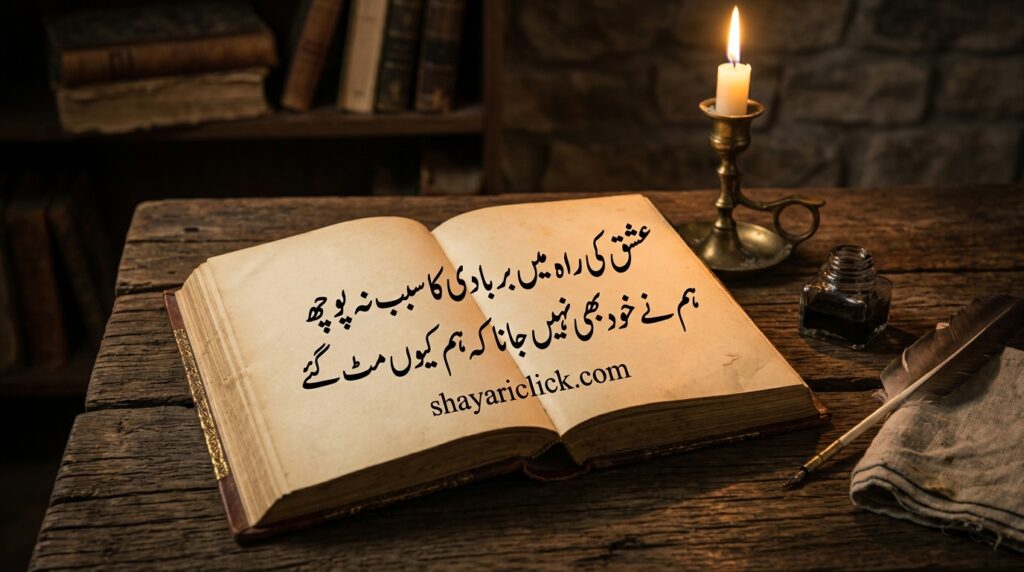 عشق کی راہ میں بربادی کا سبب نہ پوچھ
ہم نے خود بھی نہیں جانا کہ ہم کیوں مٹ گئے
shayariclick.com